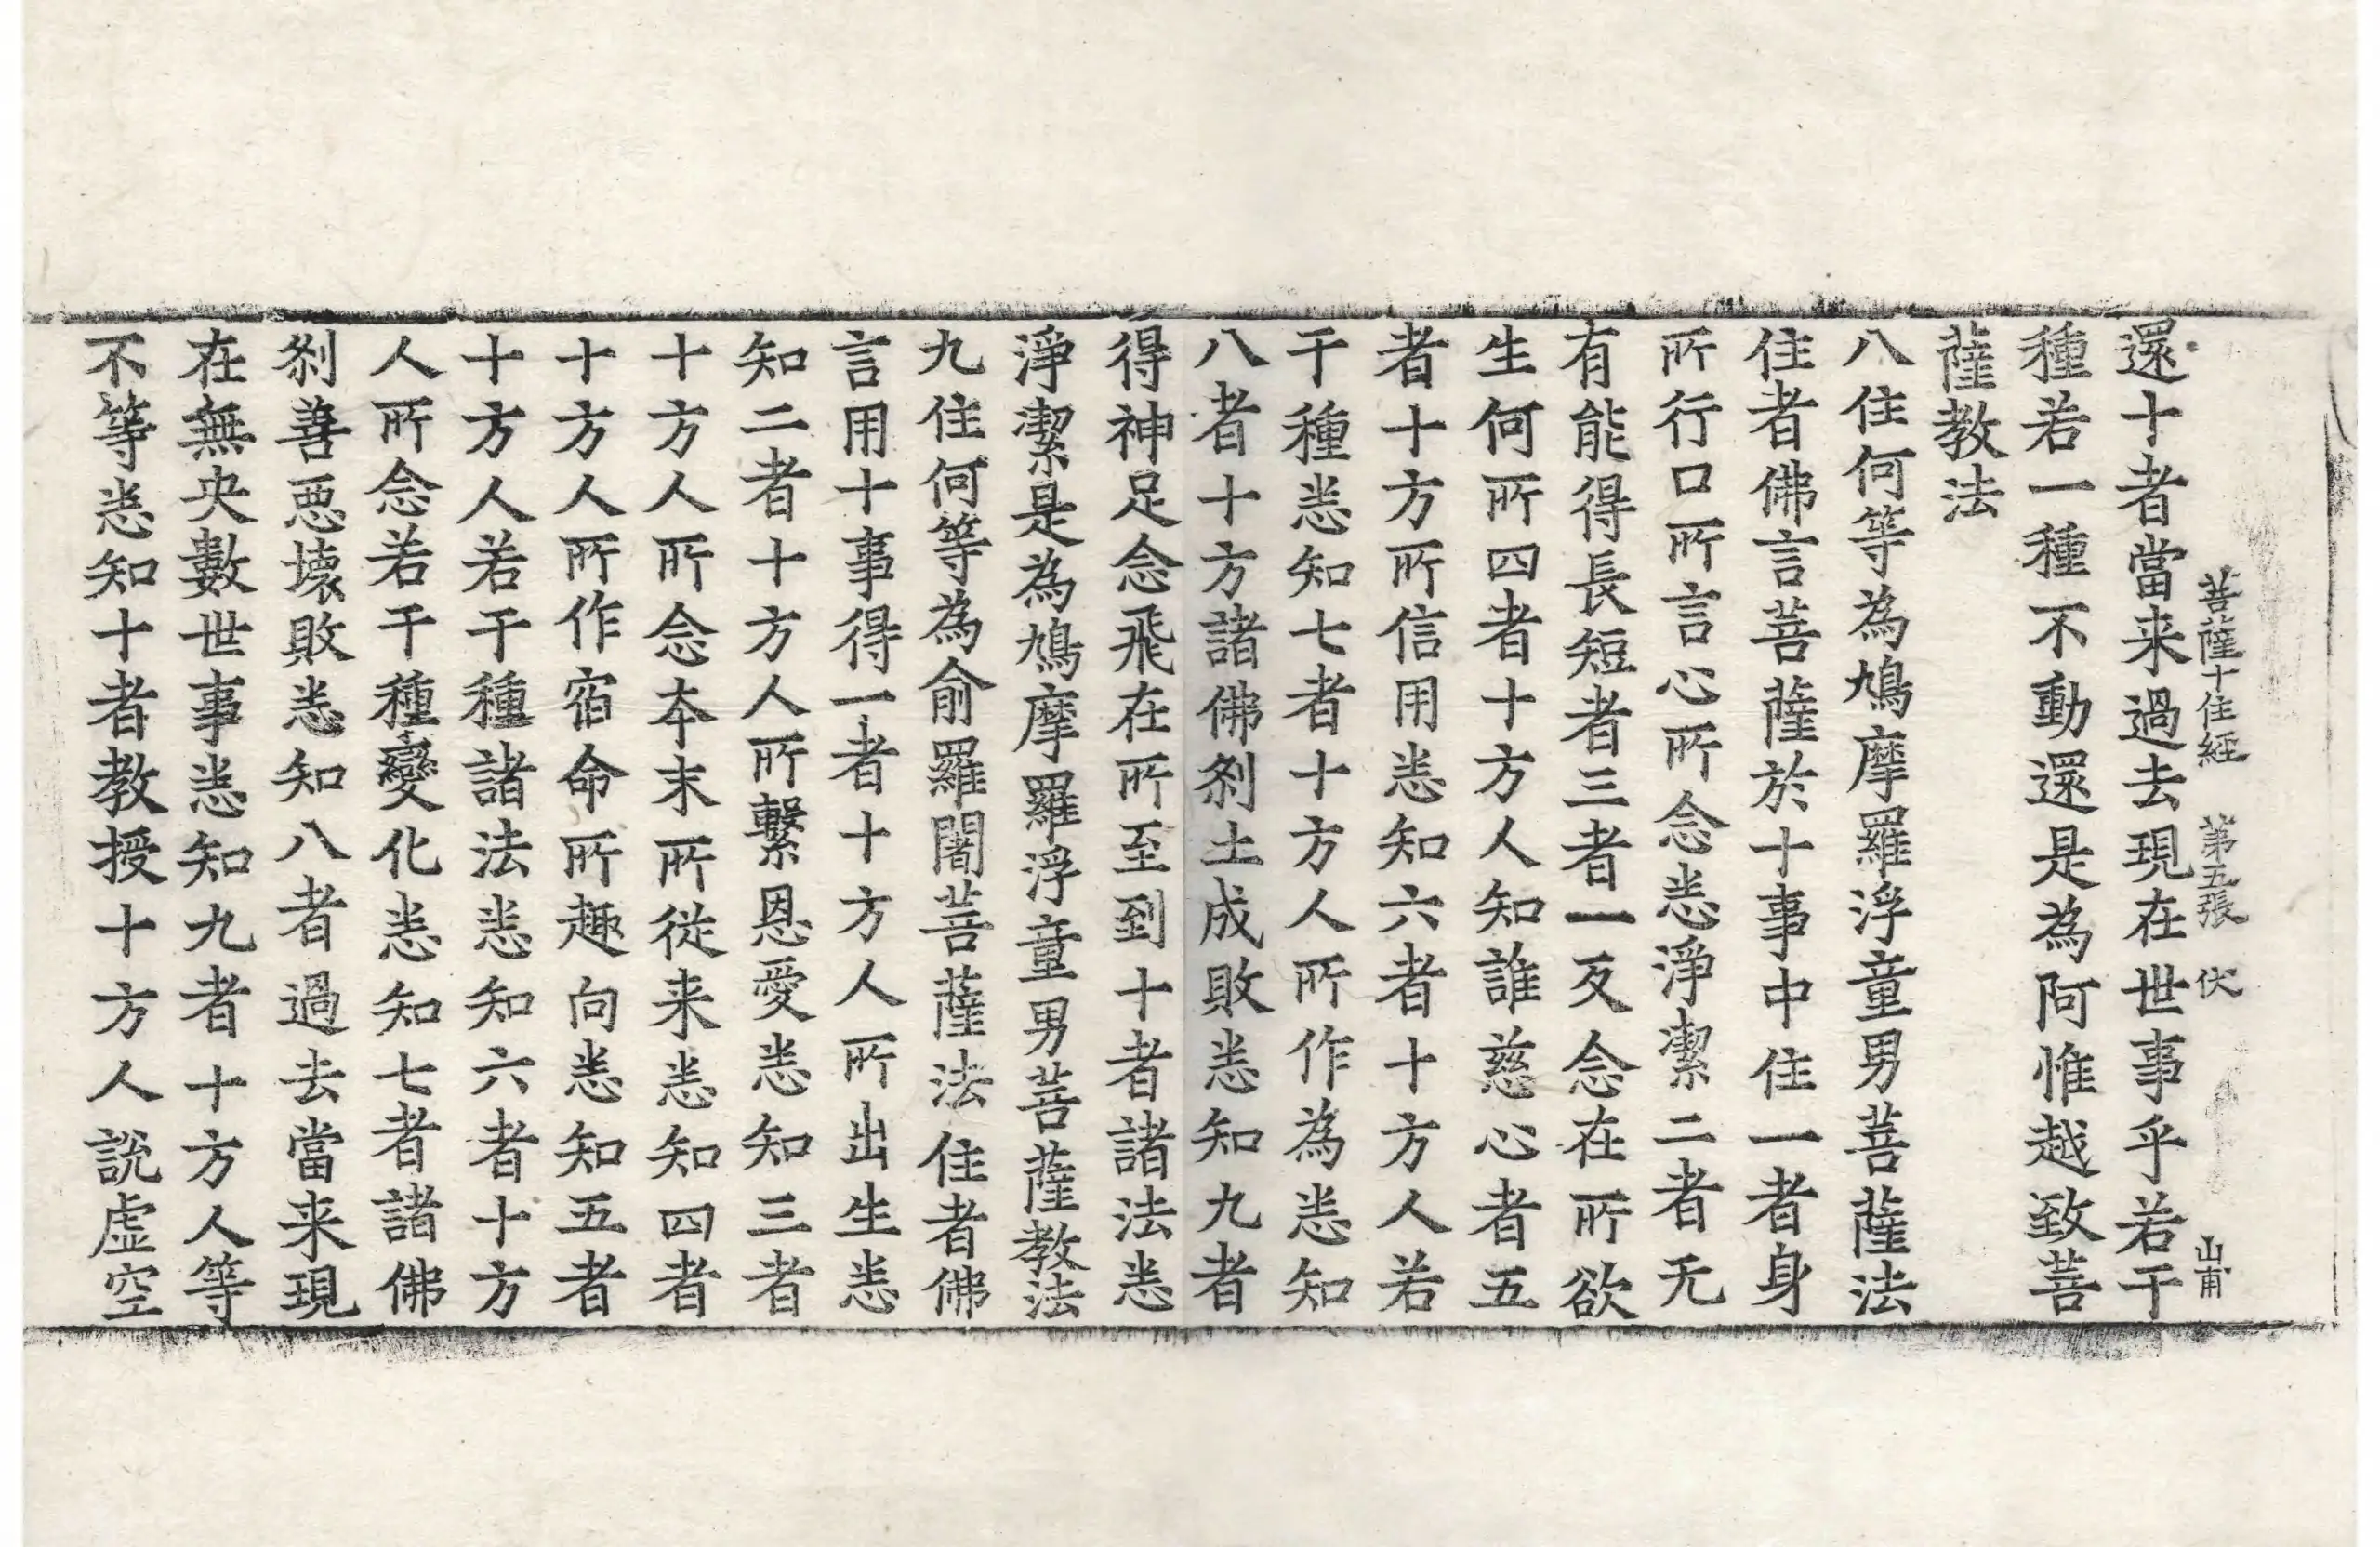 菩薩十住経 第五張 伏 山甫
還十者當来過去現在世事乎若干
種若一種不動還是為阿惟越致菩
薩教法
八住何等為鳩摩羅浮童男菩薩法
住者佛言菩薩於十事中住一者身
所行口所言心所念悉淨潔二者无
有能得長短者三者一反念在所欲
生何所四者十方人知誰慈心者五
者十方所信用悉知六者十方人若
干種悉知七者十方人所作為悉知
八者十方諸佛刹土成敗悉知九者
得神足念飛在所至到十者諸法悉
淨潔是為鳩摩羅浮童男菩薩教法
九住何等為俞羅闍菩薩法住者佛
言用十事得一者十方人所出生悉
知二者十方人所繫恩愛悉知三者
十方人所念本末所從来悉知四者
十方人所作宿命所趣向悉知五者
十方人若干種諸法悉知六者十方
人所念若干種變化悉知七者諸佛
刹善惡壊敗悉知八者過去當来現
在無央數世事悉知九者十方人等
不等悉知十者教授十方人說虛空